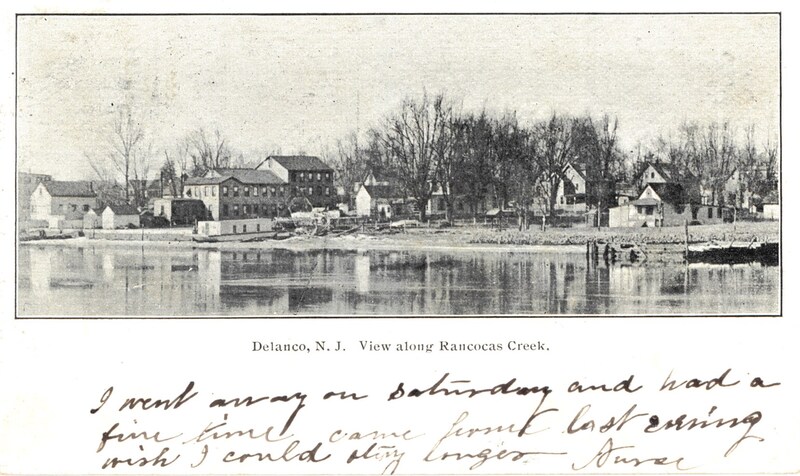 Delanco, N. J. View along Rancocas Creek.
I went away on saturday and had a
fine time came home last evening
wish I could stay longer Nurse